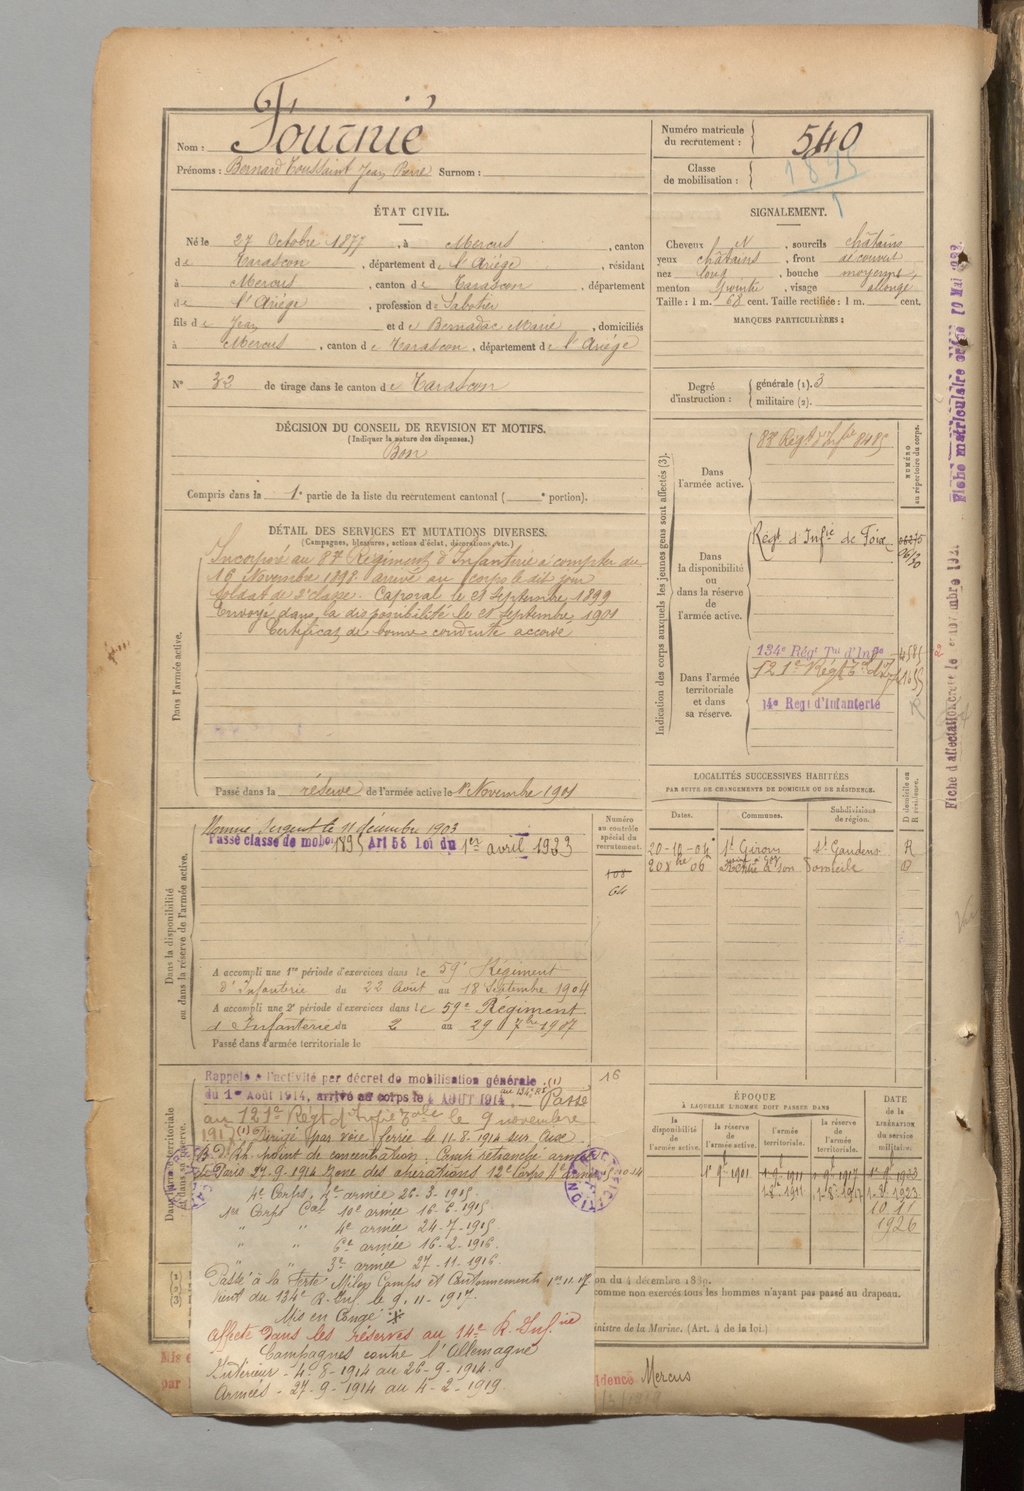 Nom : Fournié
Prénoms : Bernard Toussaint Jean Pierre Surnom :
Numéro matricule du recrutement : 540
Classe de mobilisation : 1895
ÉTAT CIVIL.
Né le 27 Octobre 1877, à Mercus, canton
de Tarascon, département de l'Ariège, résidant
à Mercus, canton de Tarascon, département
de l'Ariège, profession de Sabotier
fils de Jean et de Bernadac Marie, domiciliés
à Mercus, canton de Tarascon, département de l'Ariège
N° 32 de tirage dans le canton de Tarascon
SIGNALEMENT.
Cheveux N, sourcils châtains
yeux châtains, front découvert
nez long, bouche moyenne,
menton pointu, visage allongé
Taille : 1 m. 68 cent. Taille rectifiée : 1 m. cent.
MARQUES PARTICULIÈRES :
Degré d'instruction : générale (1). 3
militaire (2).
DÉCISION DU CONSEIL DE REVISION ET MOTIFS.
(Indiquer la nature des dispenses.)
Bon
Compris dans la 1e partie de la liste du recrutement cantonal ( e portion).
DÉTAIL DES SERVICES ET MUTATIONS DIVERSES.
(Campagnes, blessures, actions d'éclat, décorations, etc.)
Dans l'armée active.
Incorporé au 87 Régiment d'Infanterie à compter du
16 Novembre 1898 arrivé au corps le dit jour
Soldat de 2e classe. Caporal le 21 Septembre 1899
Envoyé dans la disponibilité le 21 Septembre 1901
Certificat de bonne conduite accordé
Passé dans la réserve de l'armée active le 1er Novembre 1901
Indication des corps auxquels les jeunes gens sont affectés (3).
NUMÉRO au répertoire du corps.
Dans l'armée active.
87 Régt d'Infie 8485
Dans la disponibilité ou dans la réserve de l'armée active.
Régt d'Infie de Foix
Dans l'armée territoriale et dans sa réserve.
134e Régt Tal d'Infie 4585
121e Régt Tal d'Inf 1655
14e Régt d'Infanterie
Dans la disponibilité ou dans la réserve de l'armée active.
Nommé Sergent le 11 décembre 1903
Passé classe de mobon 1895 Art 58 Loi du 1er avril 1923
Numéro au contrôle spécial du recrutement.
108
64
A accompli une 1re période d'exercices dans le 59e Régiment
d'Infanterie du 22 Août au 18 Septembre 1904
A accompli une 2e période d'exercices dans le 59e Régiment
d'Infanterie du 2 au 29 7bre 1907
Passé dans l'armée territoriale le
LOCALITÉS SUCCESSIVES HABITÉES
PAR SUITE DE CHANGEMENTS DE DOMICILE OU DE RÉSIDENCE.
Dates. Communes. Subdivisions de région. D domicile ou R résidence.
20-12-04 St Girons St Gaudens R
20 8bre 06 Rentré à son domicile D
Dans l'armée territoriale et dans sa réserve.
Rappelé à l'activité par décret de mobilisation générale (1)
du 1er Août 1914, arrivé au corps le 4 AOUT 1914 au 134e RI. Passé
16
au 121e Régt d'Infie Tale le 9 novembre
1917 (1) Dirigé par voie ferrée le 11.8.1914 sur
point de concentration. Camp retranché armée
de Paris 27-9-1914 zone des opérations 12e Corps 4e armée
4e Corps, 2e armée 26-3-1915
1er Corps Cal 10e armée 16-6-1915
" " 4e armée 24-7-1915
" " 6e armée 16-2-1916.
" " 3e armée 27-11-1916.
Passé à la Ferté Milon Camps et Cantonnements 1er 11.17
vient du 134e R. Inf. le 9.11-1917.
Mis en Congé
Affecté dans les réserves au 14e R. Inf.ie
Campagnes contre l'Allemagne
Intérieur - 4-8-1914 au 26-9-1914
Armées - 27-9-1914 au 4-2-1919
ÉPOQUE
À LAQUELLE L'HOMME DOIT PASSER DANS
la disponibilité de l'armée active. la réserve de l'armée active. l'armée territoriale. la réserve de l'armée territoriale.
DATE de la LIBÉRATION du service militaire.
1er 9 1901 1-9-1911 1-9-1917 1er 9 1923
1-8-1911 1-8-1917 1-8-1923
10 11
1926
on du 4 décembre 1889.
comme non exercés tous les hommes n'ayant pas passé au drapeau.
inistre de la Marine. (Art. 4 de la loi.)
Mis e
par
idence Mercus
Fiche matriculaire créée 10 Mai
Fiche d'affectation créée le